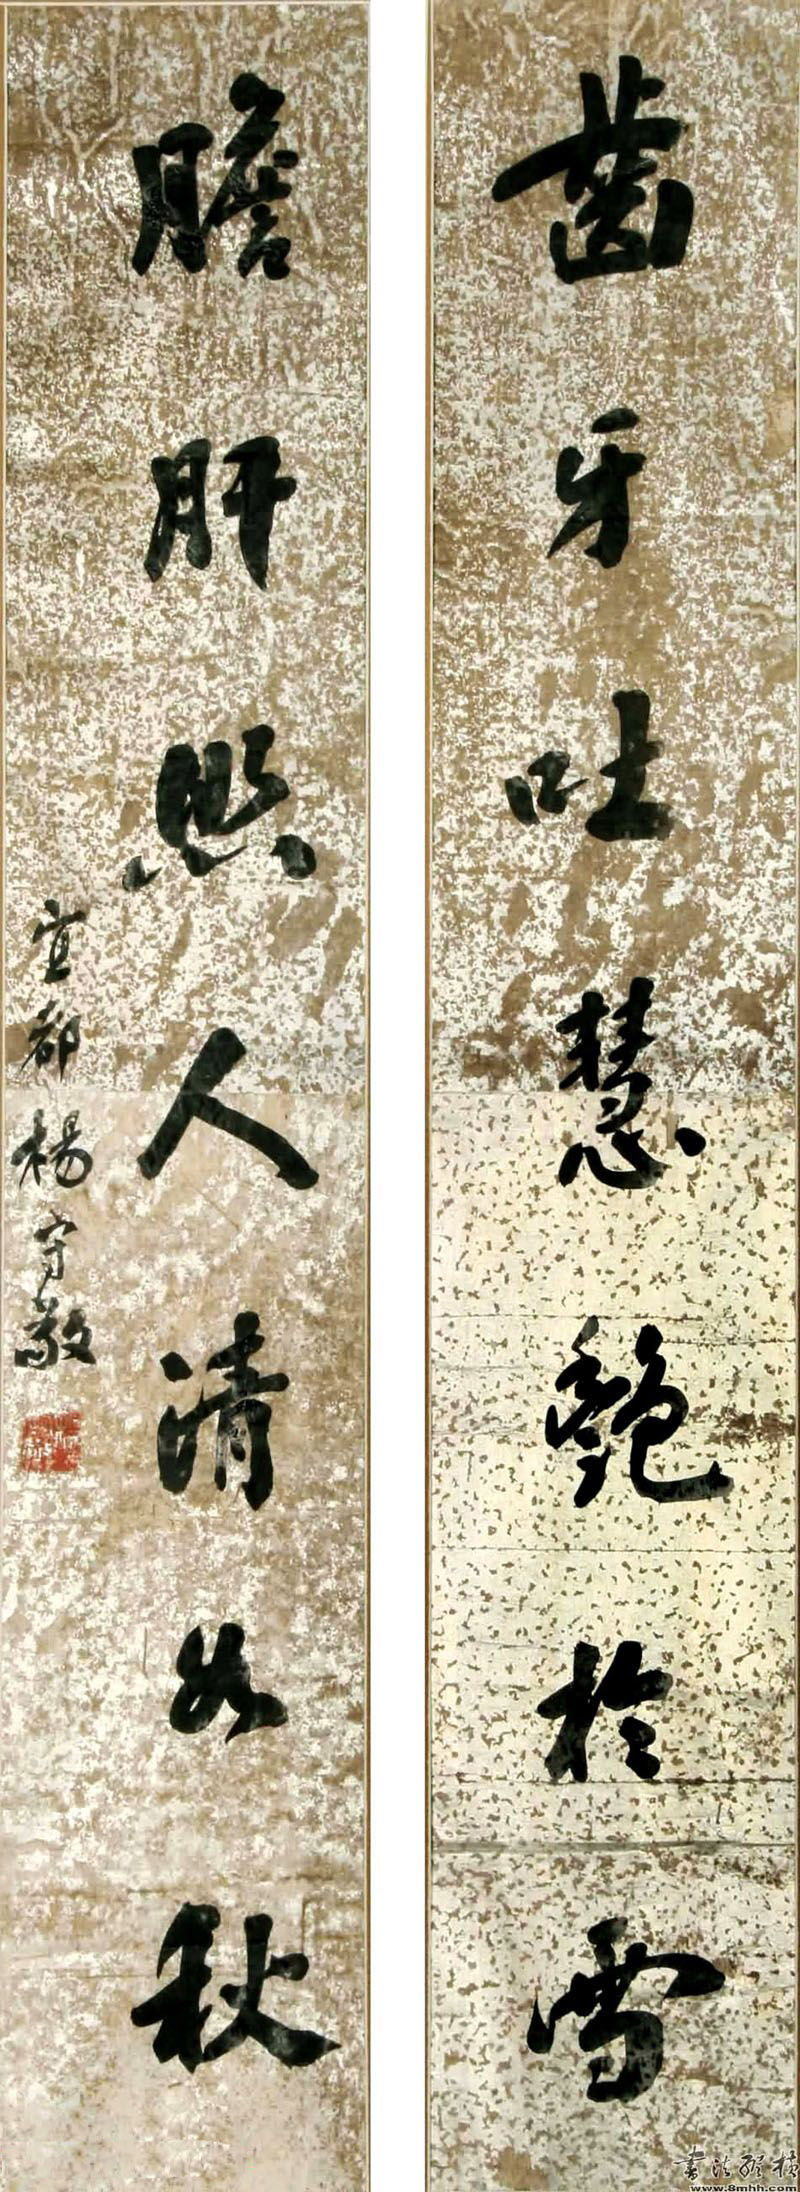 齒牙吐慧艷於雪
膽肝照人清如秋
宜都楊守敬
書法縱橫
www.8mhh.com